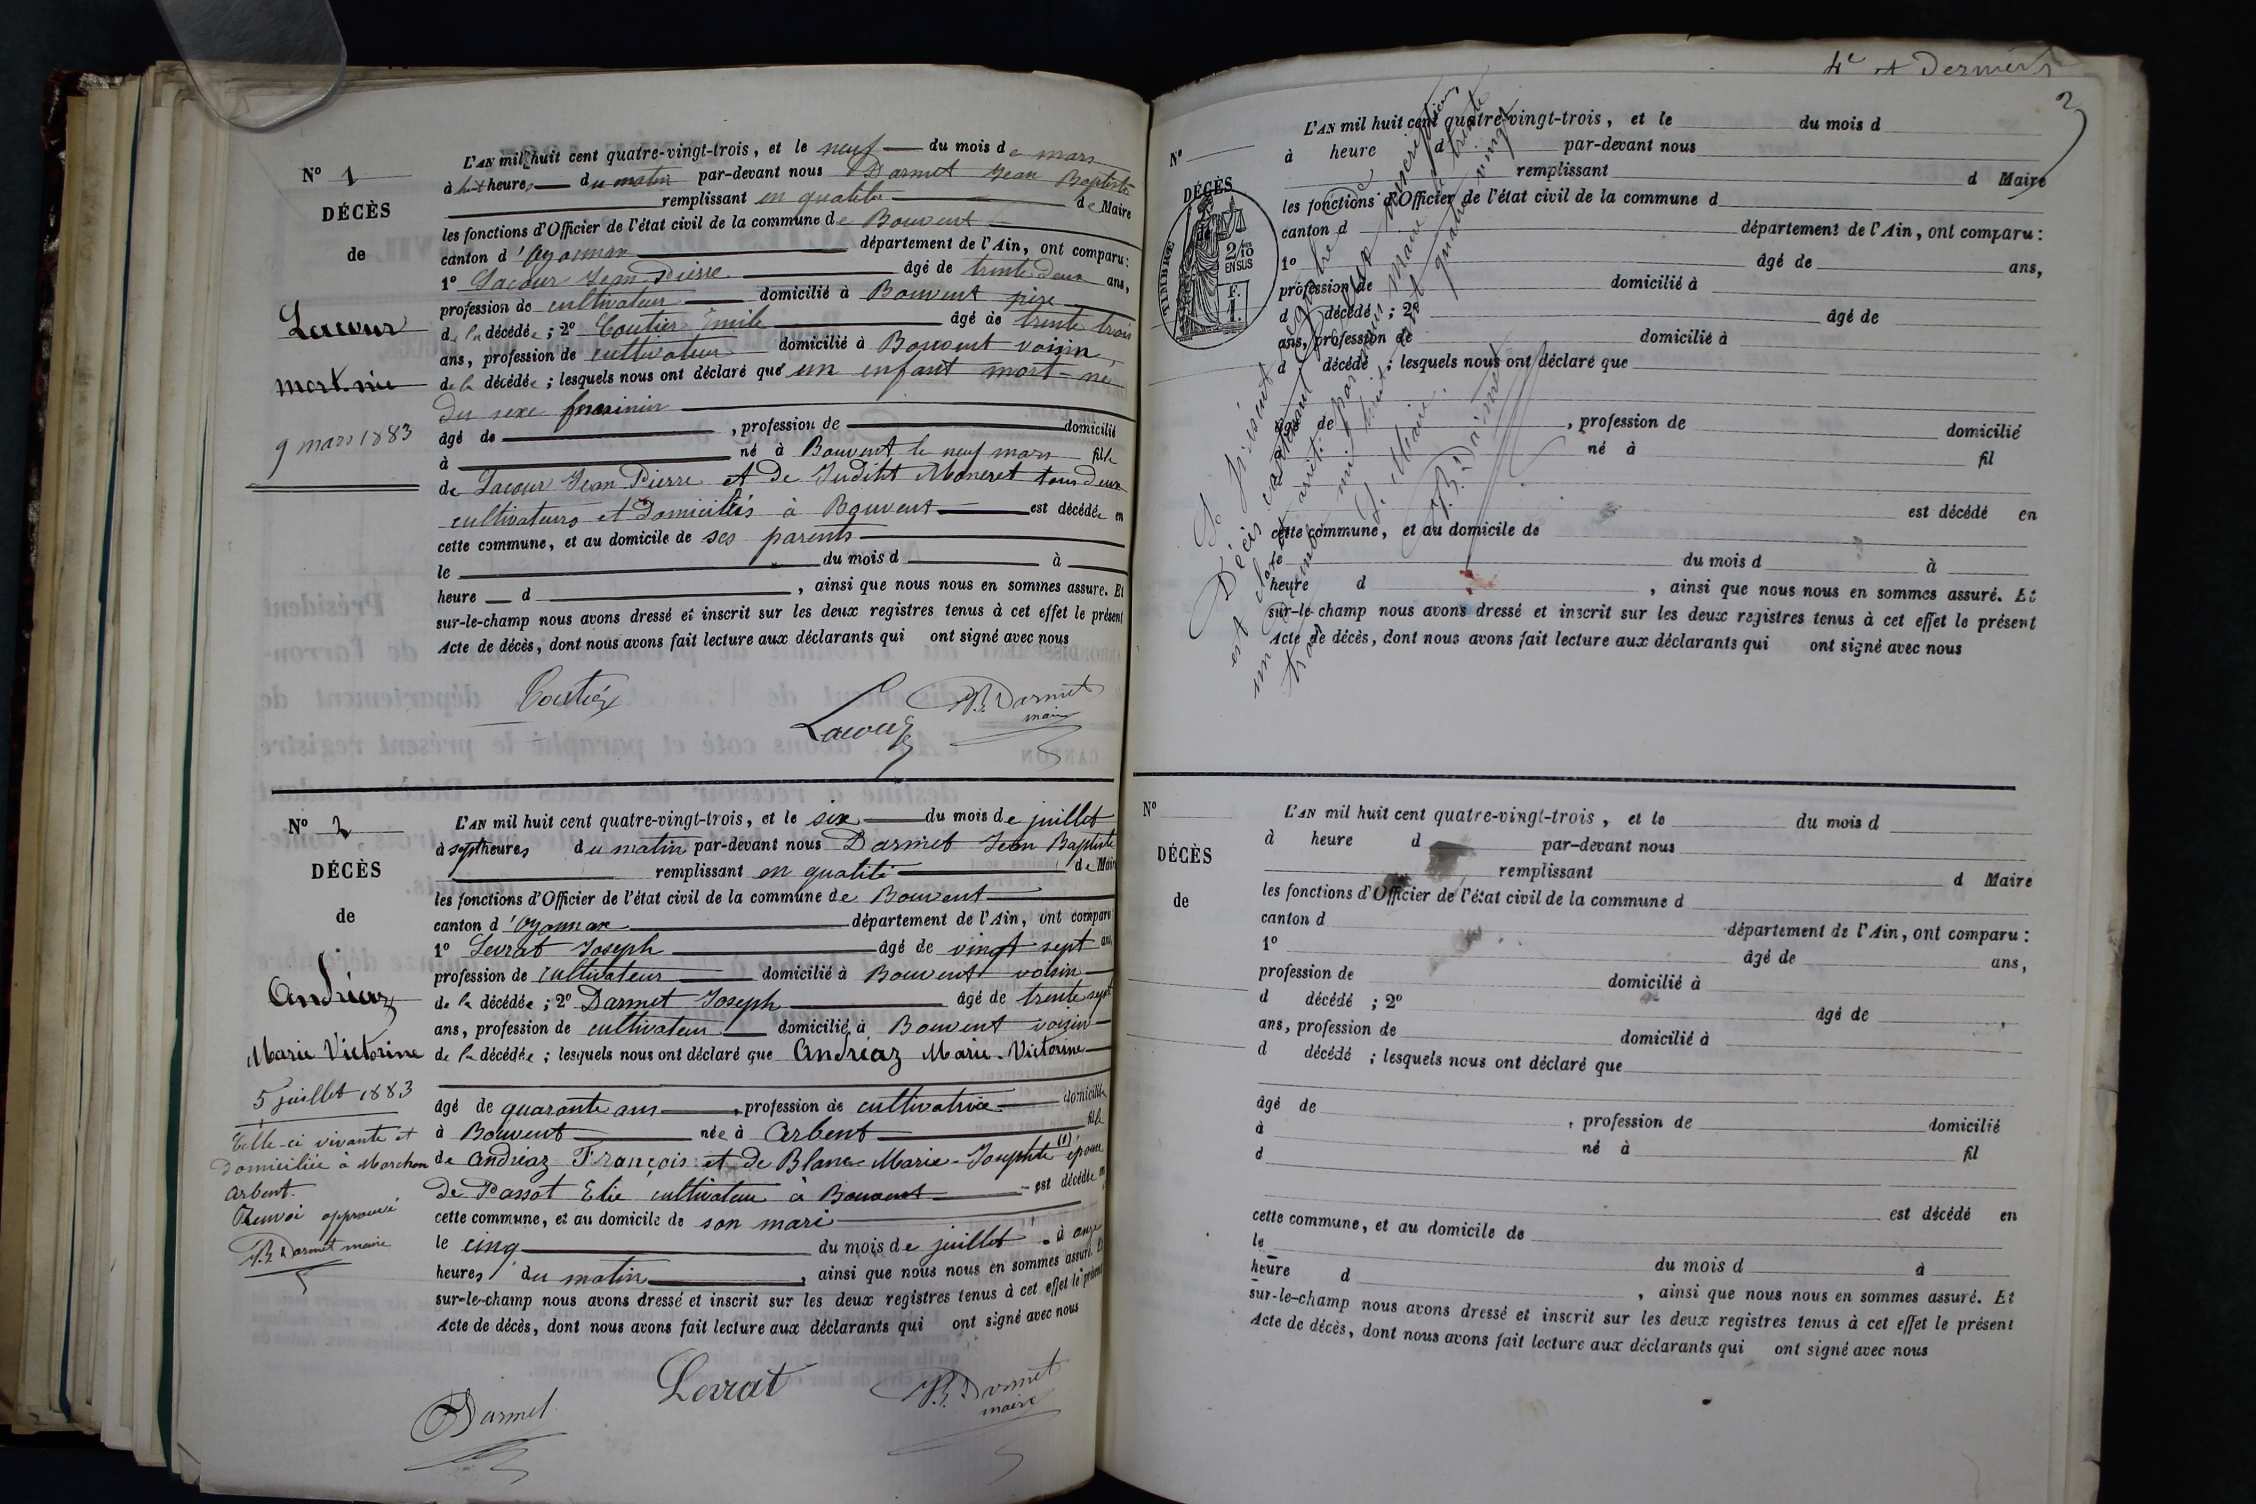 N° 1
DÉCÈS
de
Lacour
mort-née
9 mars 1883
L'AN mil huit cent quatre-vingt-trois, et le neuf du mois de mars
à huit heures du matin par-devant nous Darmet Jean Baptiste
remplissant en qualité de Maire
les fonctions d'Officier de l'état civil de la commune de Bouvent
canton d'Oyonnax département de l'Ain, ont comparu :
1° Lacour Jean Pierre âgé de trente deux ans,
profession de cultivateur domicilié à Bouvent père
de la décédée ; 2° Coutier Emile âgé de trente trois
ans, profession de cultivateur domicilié à Bouvent voisin
de la décédée ; lesquels nous ont déclaré que un enfant mort-né
du sexe feminin
âgé de , profession de domicilié
à né à Bouvent le neuf mars fille
de Lacour Jean Pierre et de Judith Moneret tous deux
cultivateurs et domiciliés à Bouvent est décédée en
cette commune, et au domicile de ses parents
le du mois d à
heure d , ainsi que nous nous en sommes assuré. Et
sur-le-champ nous avons dressé et inscrit sur les deux registres tenus à cet effet le présent
Acte de décès, dont nous avons fait lecture aux déclarants qui ont signé avec nous
Coutier
Lacour
J.B. Darmet
maire
N° 2
DÉCÈS
de
Andréaz
Marie Victorine
5 juillet 1883
Celle-ci vivante et
domiciliée à Marchon
Arbent.
Renvoi approuvé
J.B. Darmet maire
L'AN mil huit cent quatre-vingt-trois, et le six du mois de juillet
à sept heures du matin par-devant nous Darmet Jean Baptiste
remplissant en qualité de Maire
les fonctions d'Officier de l'état civil de la commune de Bouvent
canton d'Oyonnax département de l'Ain, ont comparu
1° Levrat Joseph âgé de vingt sept ans
profession de cultivateur domicilié à Bouvent voisin
de la décédée ; 2° Darmet Joseph âgé de trente sept
ans, profession de cultivateur domicilié à Bouvent voisin
de la décédée ; lesquels nous ont déclaré que Andréaz Marie-Victorine
âgé de quarante ans , profession de cultivatrice domiciliée
à Bouvent née à Arbent fille
de Andréaz François et de Blanc Marie-Josephte (1) épouse
de Passot Elie cultivateur à Bouvent est décédée en
cette commune, et au domicile de son mari
le cinq du mois de juillet à onze
heures du matin , ainsi que nous nous en sommes assuré. Et
sur-le-champ nous avons dressé et inscrit sur les deux registres tenus à cet effet le présent
Acte de décès, dont nous avons fait lecture aux déclarants qui ont signé avec nous
Darmet
Levrat
J.B. Darmet
maire
4e et Dernier
2
N°
DÉCÈS
de
TIMBRE
2/10
EN SUS
F.
1.
L'AN mil huit cent quatre-vingt-trois, et le du mois d
à heure d par-devant nous
remplissant d Maire
les fonctions d'Officier de l'état civil de la commune d
canton d département de l'Ain, ont comparu :
1° âgé de ans,
profession de domicilié à
d décédé ; 2° âgé de
ans, profession de domicilié à
d décédé ; lesquels nous ont déclaré que
âgé de , profession de domicilié
né à fil
est décédé en
cette commune, et au domicile de
le du mois d à
heure d , ainsi que nous nous en sommes assuré. Et
sur-le-champ nous avons dressé et inscrit sur les deux registres tenus à cet effet le présent
Acte de décès, dont nous avons fait lecture aux déclarants qui ont signé avec nous
Le présent registre de
Décès contenant deux inscriptions
est clos et arrêté par nous Maire le trente
un Décembre mil huit cent quatre vingt
trois
Le Maire.
J.B. Darmet
N°
DÉCÈS
de
L'AN mil huit cent quatre-vingt-trois, et le du mois d
à heure d par-devant nous
remplissant d Maire
les fonctions d'Officier de l'état civil de la commune d
canton d département de l'Ain, ont comparu :
1° âgé de ans,
profession de domicilié à
d décédé ; 2° âgé de ,
ans, profession de domicilié à
d décédé ; lesquels nous ont déclaré que
âgé de , profession de domicilié
à né à fil
d
est décédé en
cette commune, et au domicile de
le du mois d à
heure d , ainsi que nous nous en sommes assuré. Et
sur-le-champ nous avons dressé et inscrit sur les deux registres tenus à cet effet le présent
Acte de décès, dont nous avons fait lecture aux déclarants qui ont signé avec nous